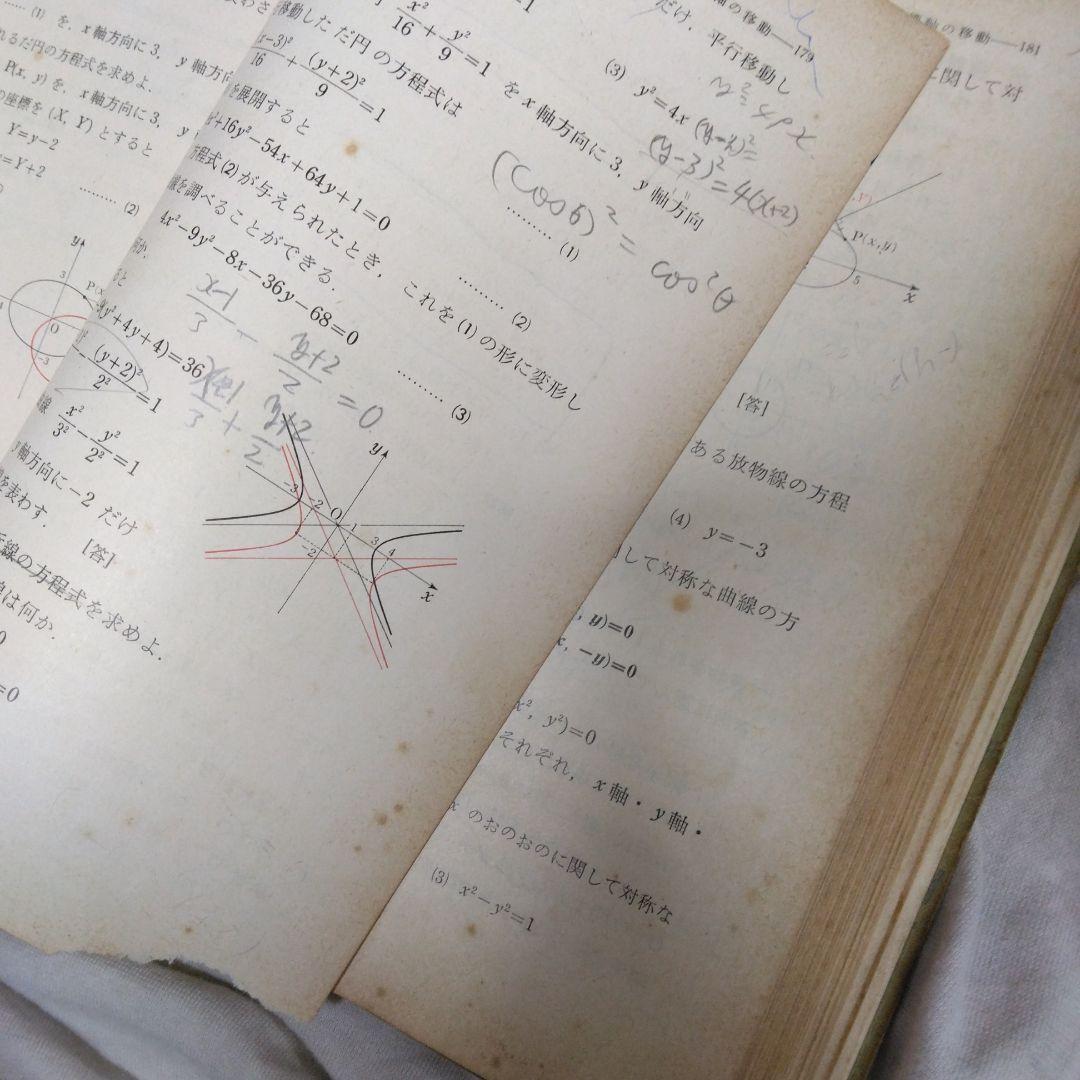 (1) を，x 軸方向に 3，y 軸方向
れるだ円の方程式を求めよ．
P(x, y) を，x 軸方向に 3，y
の座標を (X, Y) とすると
Y=y-2
=Y+2
(2)
y
3
4
O
-3
x²/16+y²/9=1 を x 軸方向に 3，y 軸方向
移動した だ円の方程式は
(x-3)²/16+(y+2)²/9=1 ……… (1)
を展開すると
+16y²-54x+64y+1=0 ……… (2)
方程式 (2) が与えられたとき，これを (1) の形に変形し
を調べることができる．
4x²-9y²-8x-36y-68=0 ……… (3)
9(y²+4y+4)=36
-(y+2)²/2²=1
線 x²/3²-y²/2²=1
y軸方向に -2 だけ
を表わす． [答]
線の方程式を求めよ．
線は何か．
=0
(cosθ)²=cos²θ
x-1/3 - y+2/2 =0
+ y+2/2
y
-3
-2
O
1
3
4
-2
x
の移動——179
だけ，平行移動し
(3) y²=4x
y²=4px
(y-3)²=4(x+2)
軸の移動——181
に関して対
P(x, y)
5
x
[答]
ある放物線の方程
(4) y=-3
して対称な曲線の方
, y)=0
x, -y)=0
x², y²)=0
それぞれ，x 軸・y 軸・
x のおのおのに関して対称な
(3) x²-y²=1